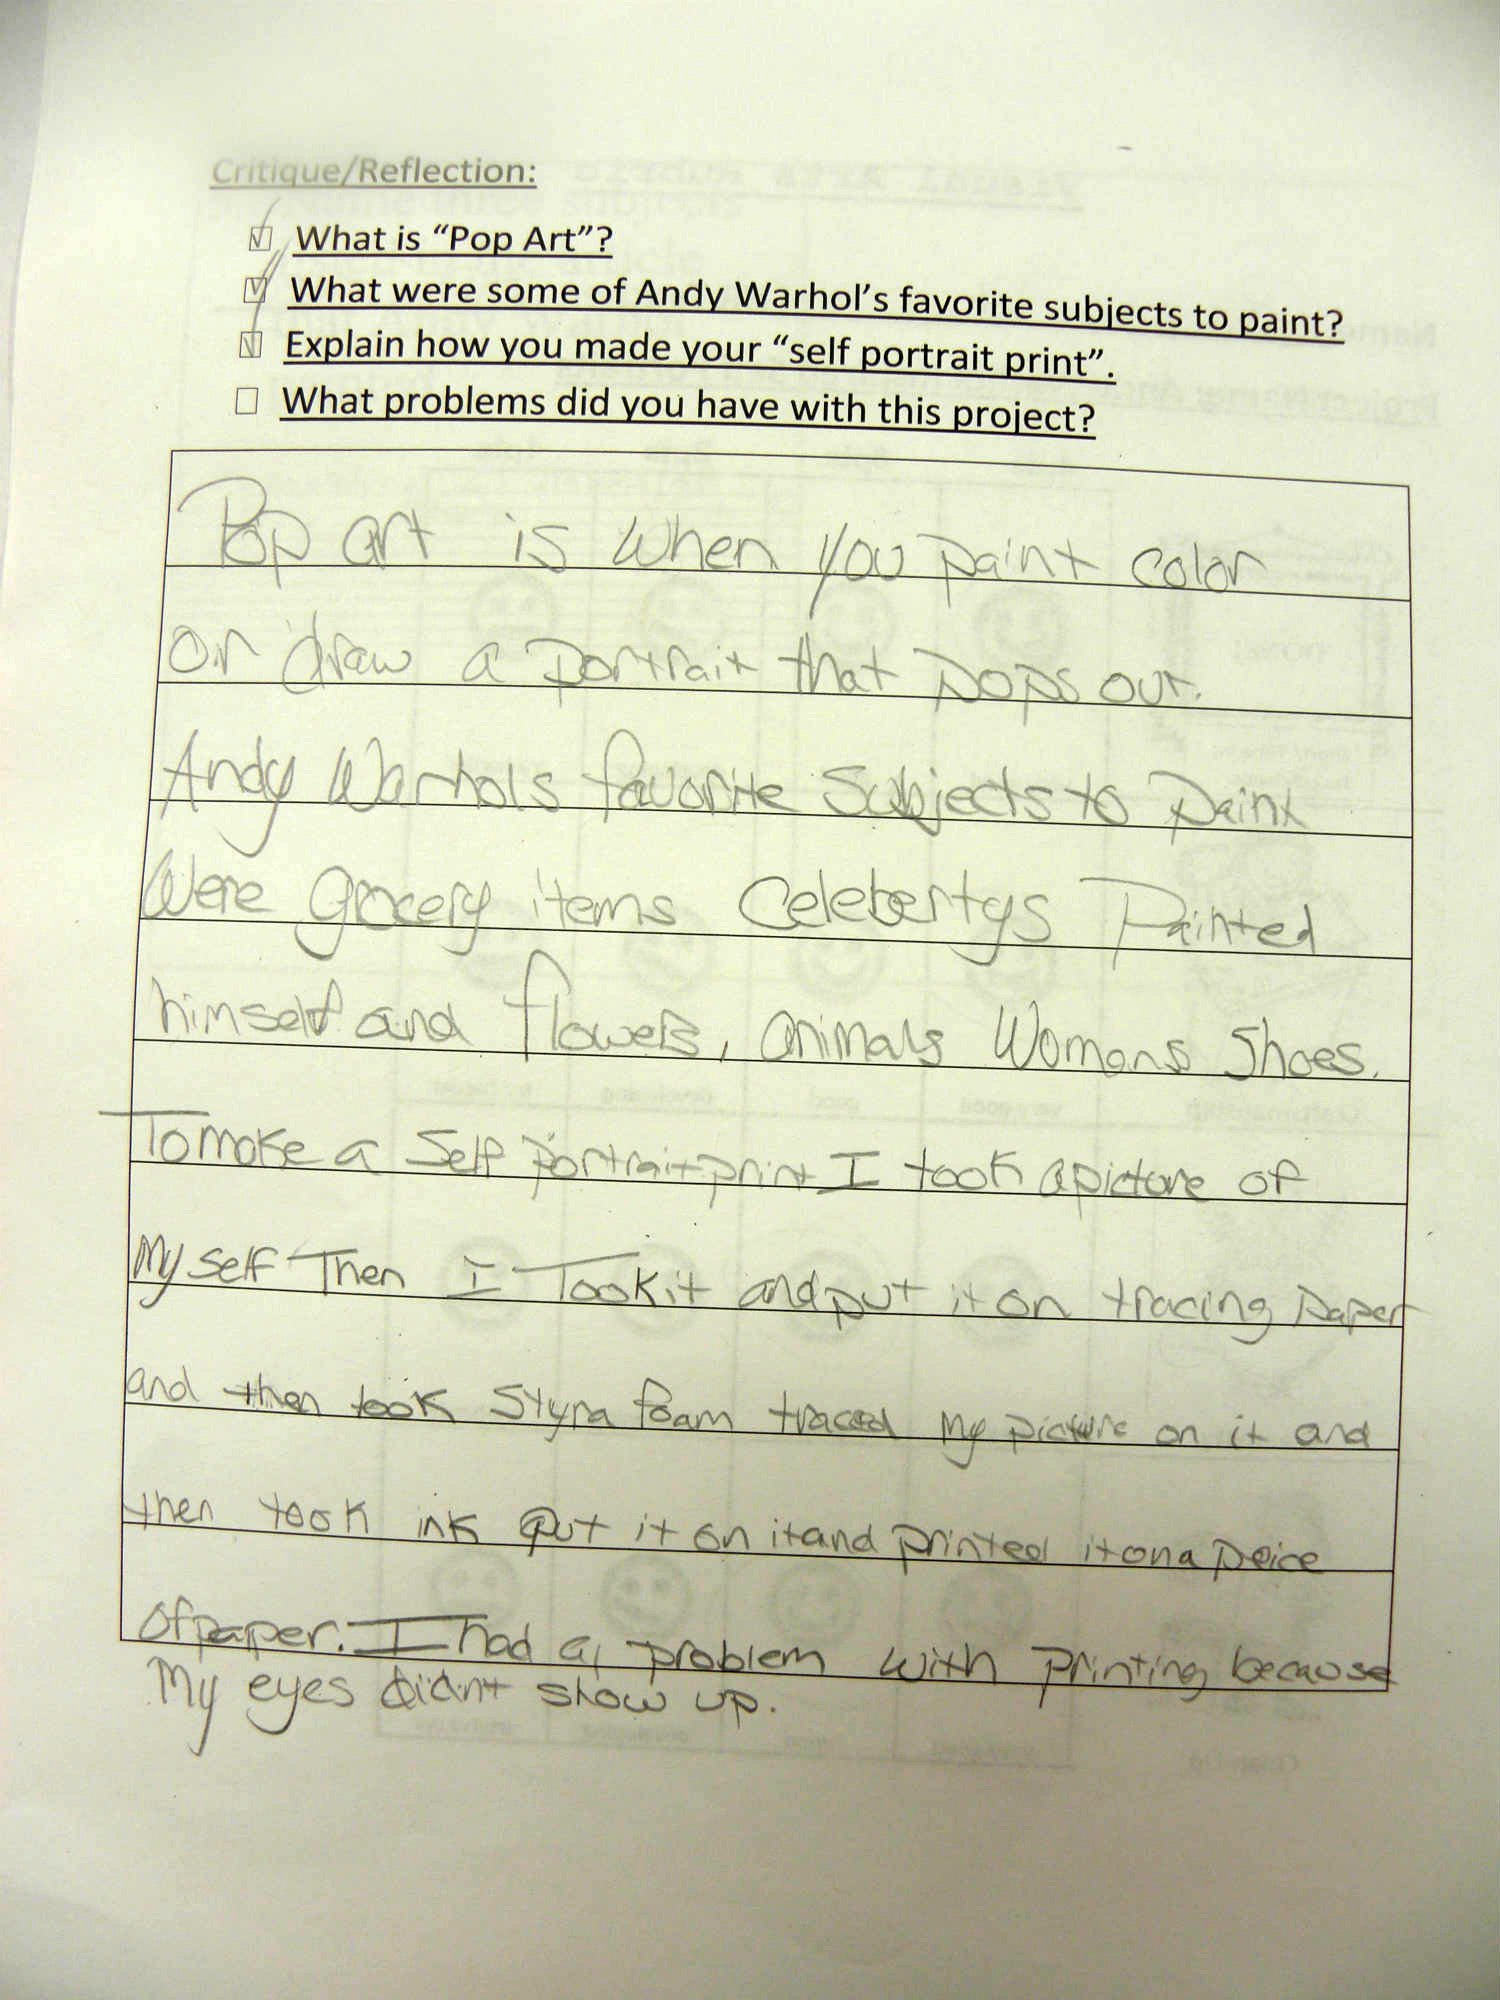 Critique/Reflection:
What is “Pop Art”?
What were some of Andy Warhol’s favorite subjects to paint?
Explain how you made your “self portrait print”.
What problems did you have with this project?
Pop art is when you paint color
or draw a portrait that pops out.
Andy Warhols favorite Subjects to paint
Were grocery items Celebertys Painted
himself and flowers, animals Womans Shoes.
To make a Self portrait print I took a picture of
My self Then I Took it and put it on tracing paper
and then took Styra foam traced my picture on it and
then took ink put it on it and printed it on a peice
of paper. I had a problem with printing because
My eyes didnt show up.